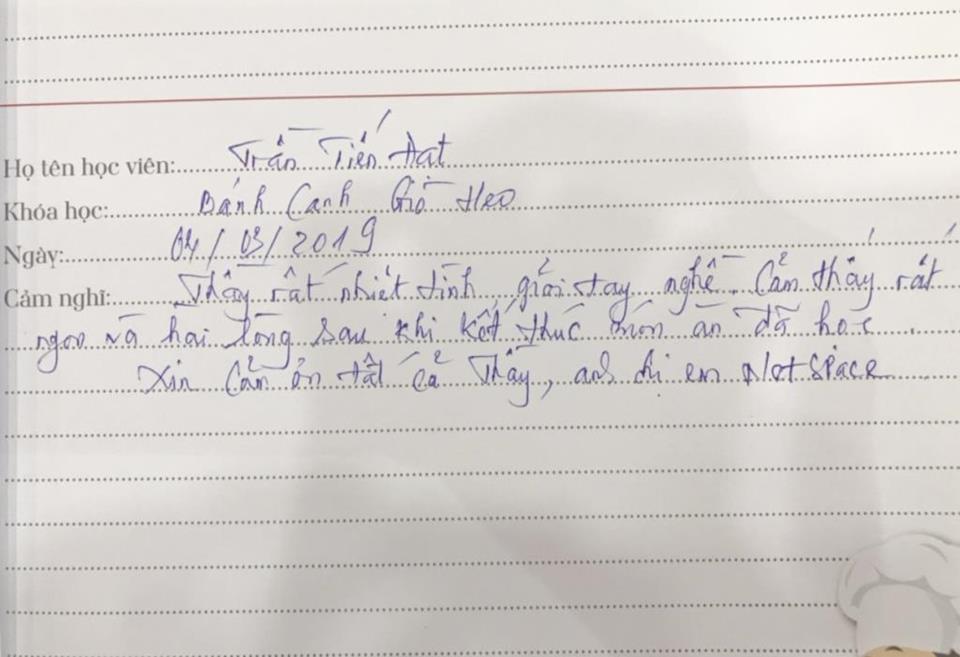 Họ tên học viên: Trần Tiến Đạt
Khóa học: Bánh Canh Giò Heo
Ngày: 04/03/2019
Cảm nghĩ: Thầy rất nhiệt tình, giỏi tay nghề. Cảm thấy rất
ngon và hài lòng sau khi kết thúc món ăn đã học.
Xin Cảm ơn tất cả Thầy, anh chị em Netspace